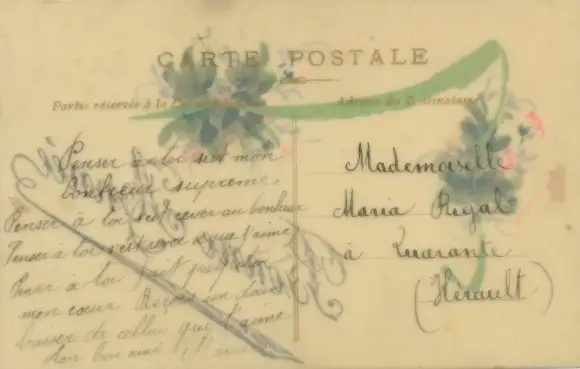 CARTE POSTALE
Partie réservée à la
Adresse du Destinataire
Penser à toi est mon
bonheur supreme
Penser à toi s'est rever au bonheur
Penser à toi que j'aime
Penser à toi fait
mon cœur Reçois un
baiser de cellui que t'aime
ton bon ami
Mademoiselle
Maria Rigal
à Quarante
(Hérault)